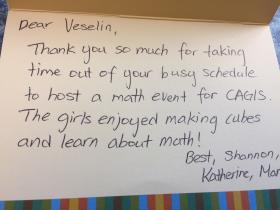 Dear Veselin,
Thank you so much for taking
time out of your busy schedule
to host a math event for CAGIS.
The girls enjoyed making cubes
and learn about math!
Best, Shannon,
Katherine, Mar